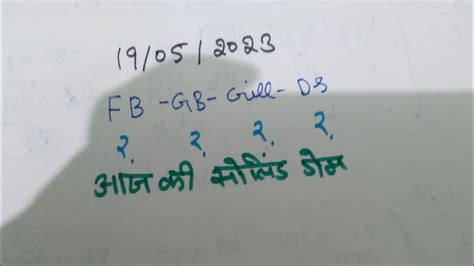 19/05/2023
FB-GB-Gill-DS
२. २. २. २.
आज की सोलिड गेम